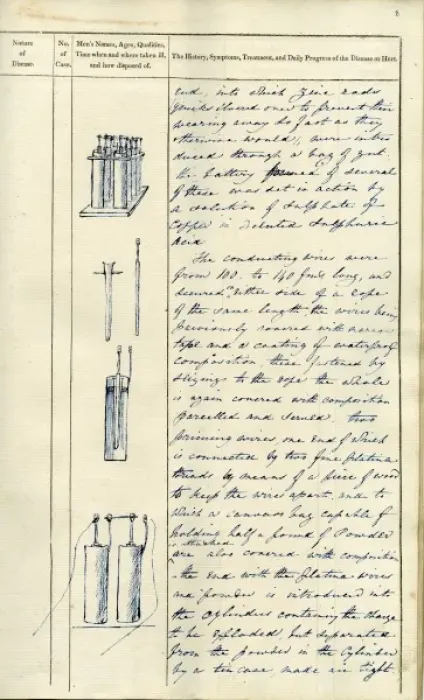 8
Nature
of
Disease.
No.
of
Case.
Men's Names, Ages, Qualities,
Time when and where taken ill,
and how disposed of.
The History, Symptoms, Treatment, and Daily Progress of the Disease or Hurt.
end, into which Zinc rods
over to prevent their
wearing away so fast as they
otherwise would, were intro
duced through a bag of gut.
The battery formed of several
of these was set in action by
a solution of Sulphate of
Copper in Diluted Sulphuric
Acid
The conducting wires were
from 100 to 140 fms long, and
secured either side of a rope
of the same length, the wires being
previously covered with narrow
tape and a coating of waterproof
composition, these fastened by
to the rope the whole
is again covered with composition
parcelled and served. two
priming wires, one end of which
is connected by two fine platina
threads by means of a piece of wood
to keep the wires apart, and to
which a canvas bag capable of
holding half a pound of Powder
is attached
are also covered with composition
the end with the Platina wires
and powder is introduced into
the Cylinders containing the charge
to be exploded, but separated
from the powder in the Cylinder
by a tin case, made air tight